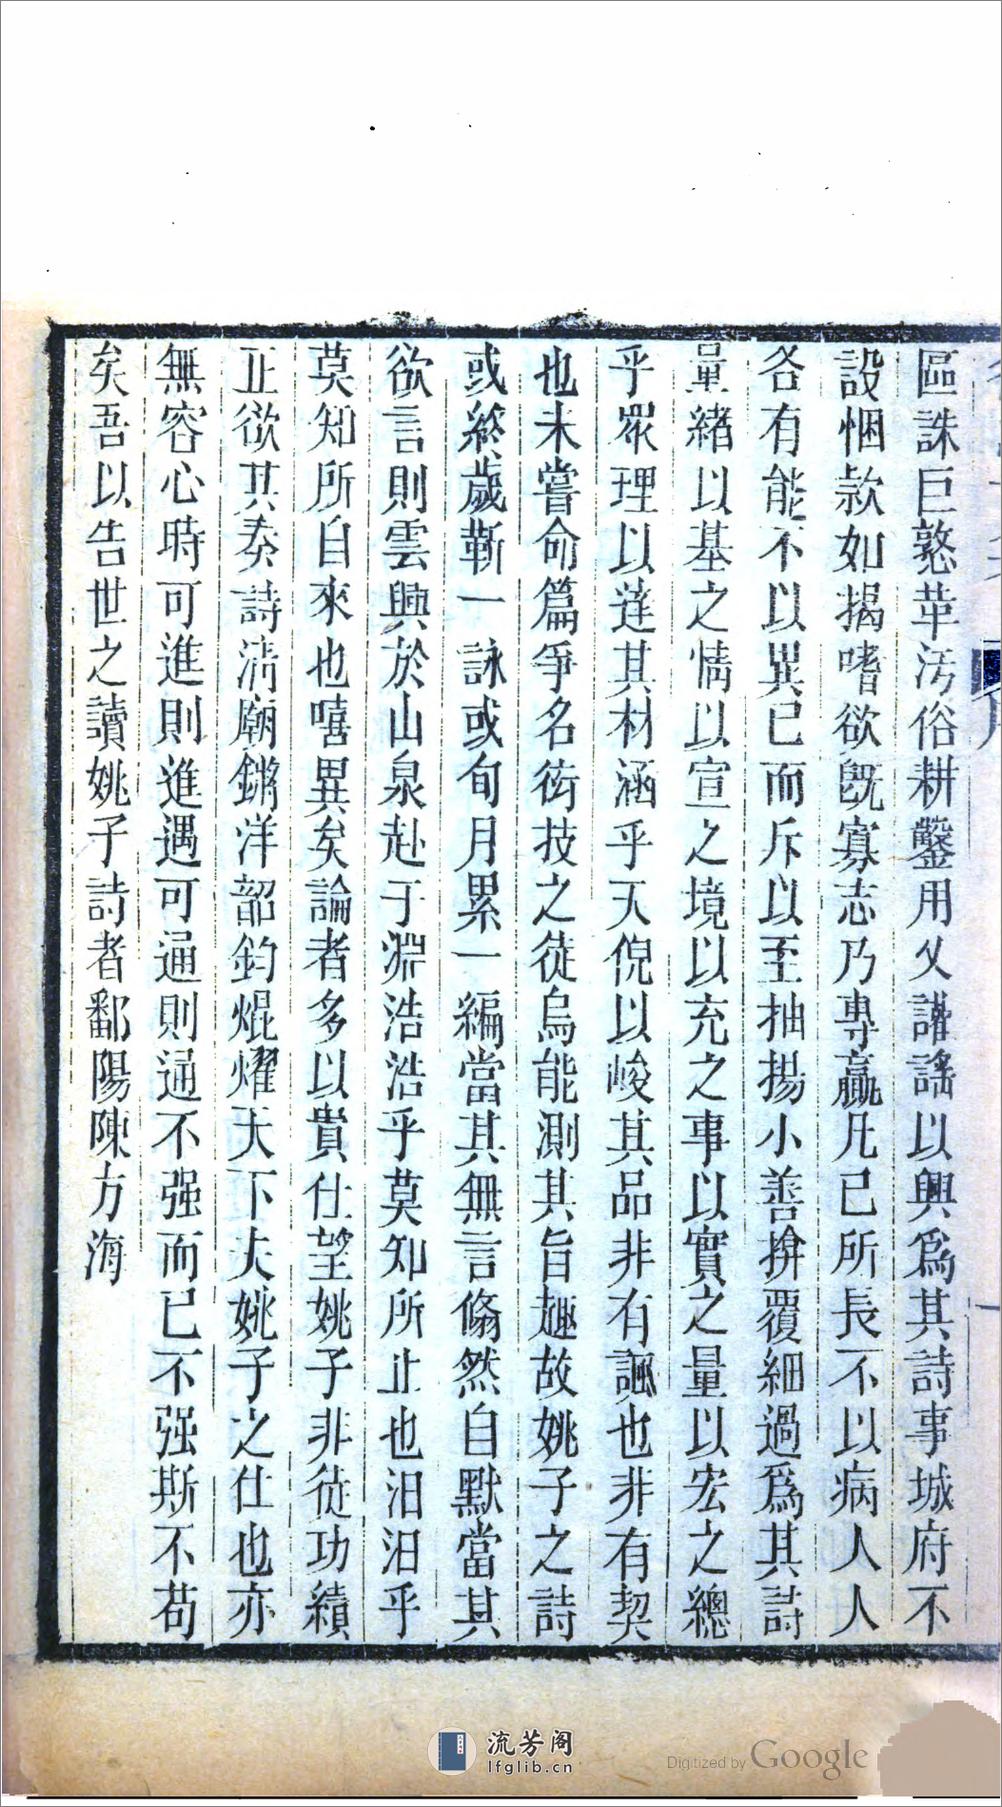 區誅巨憝革汚俗耕鑿用乂讙謠以興爲其詩事城府不
設悃欵如揭嗜欲旣寡志乃專贏凡已所長不以病人人
各有能不以異已而斥以至抽揚小善揜覆細過爲其詩
量緒以基之情以宣之境以充之事以實之量以宏之總
乎眾理以達其材涵乎天倪以峻其品非有諷也非有契
也未嘗命篇爭名衒技之徒烏能測其旨趣故姚子之詩
或終歲蘄一詠或旬月累一編當其無言翛然自默當其
欲言則雲興於山泉赴于淵浩浩乎莫知所止也汨汨乎
莫知所自來也嘻異矣論者多以貴仕望姚子非徒功績
正欲其奏詩淸廟鏘洋韶鈞焜燿天下夫姚子之仕也亦
無容心時可進則進遇可通則通不强而已不强斯不苟
矣吾以告世之讀姚子詩者鄱陽陳方海
流芳阁
lfglib.cn
Digitized by Google